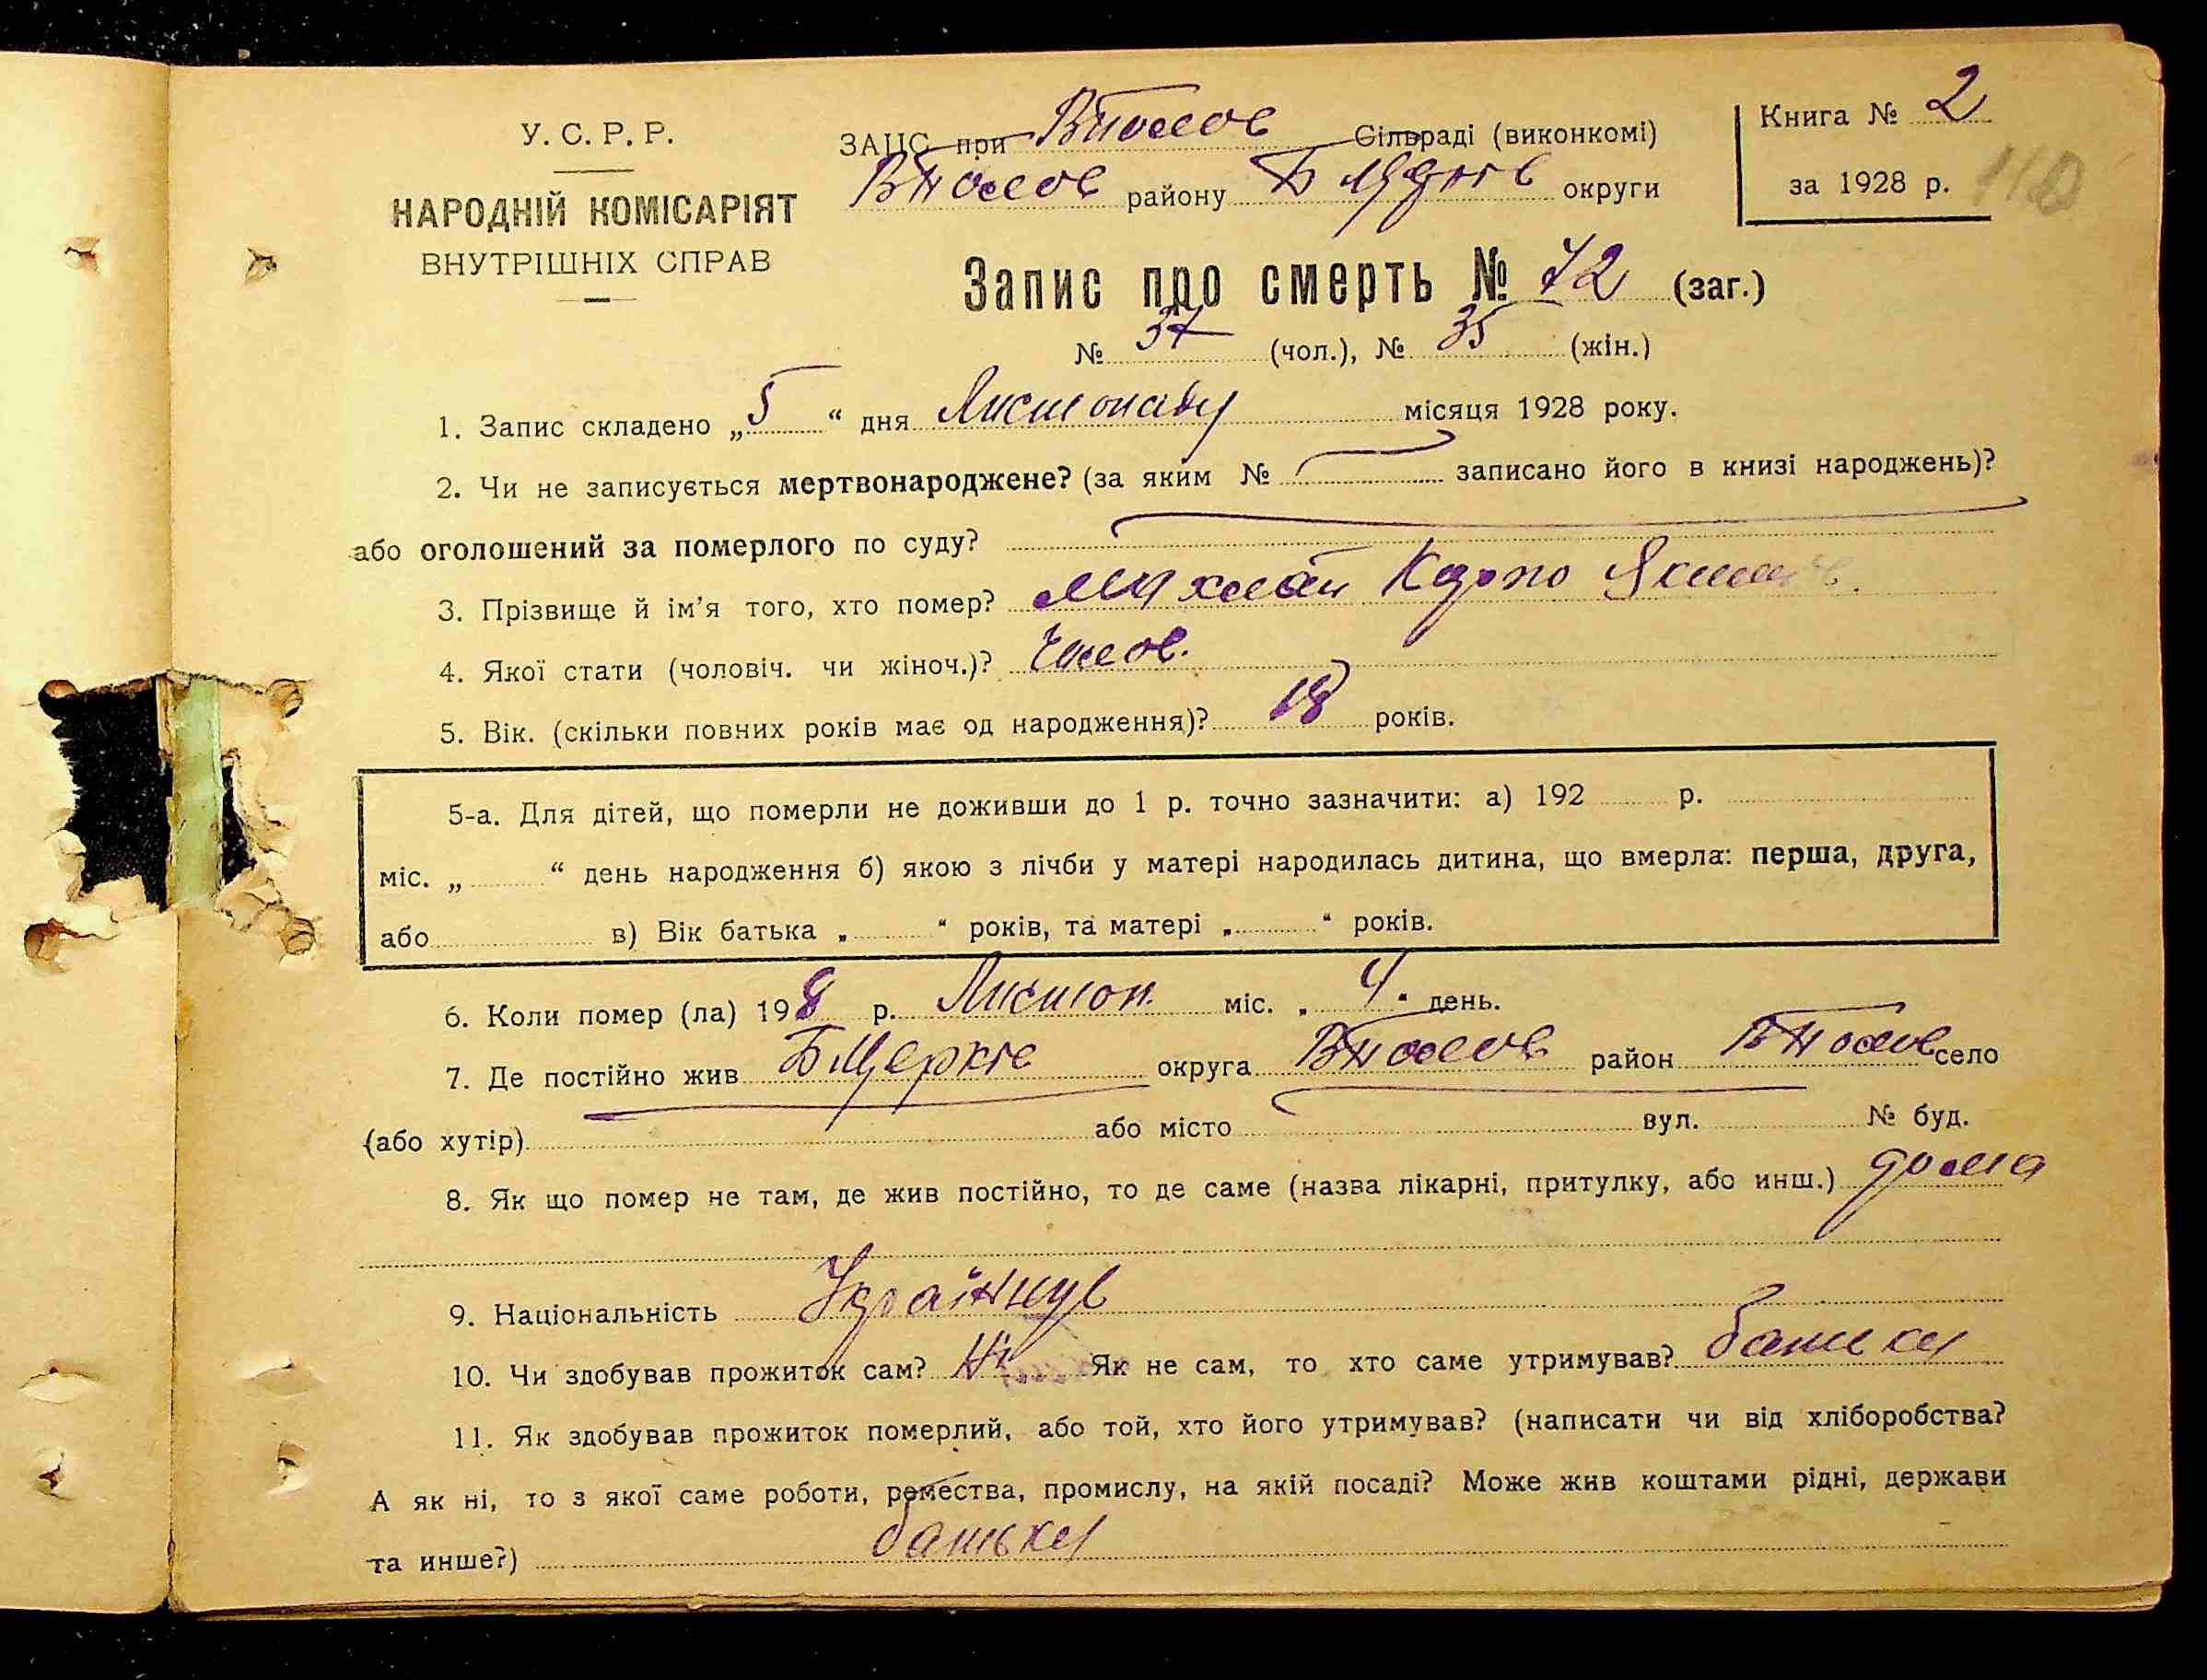 У. С. Р. Р.
НАРОДНІЙ КОМІСАРІЯТ
ВНУТРІШНІХ СПРАВ
ЗАЦС при ВПолов Сільраді (виконкомі)
ВПолов району округи
Книга № 2
за 1928 р.
110
Запис про смерть № 72 (заг.)
№ 37 (чол.), № 35 (жін.)
1. Запис складено „5“ дня Листопаду місяця 1928 року.
2. Чи не записується мертвонароджене? (за яким № записано його в книзі народжень)?
або оголошений за померлого по суду?
3. Прізвище й ім'я того, хто помер? Карпо
4. Якої стати (чоловіч. чи жіноч.)? Чолов.
5. Вік. (скільки повних років має од народження)? 18 років.
5-а. Для дітей, що померли не доживши до 1 р. точно зазначити: а) 192 р.
міс. „ “ день народження б) якою з лічби у матері народилась дитина, що вмерла: перша, друга,
або в) Вік батька „ “ років, та матері „ “ років.
6. Коли помер (ла) 198 р. Листоп. міс. „4“ день.
7. Де постійно жив БЦеркіс округа ВПолов район ВПолов село
(або хутір) або місто вул. № буд.
8. Як що помер не там, де жив постійно, то де саме (назва лікарні, притулку, або инш.) дома
9. Національність
10. Чи здобував прожиток сам? Ні Як не сам, то хто саме утримував? батьки
11. Як здобував прожиток померлий, або той, хто його утримував? (написати чи від хліборобства?
А як ні, то з якої саме роботи, ремества, промислу, на якій посаді? Може жив коштами рідні, держави
та инше?) батьки